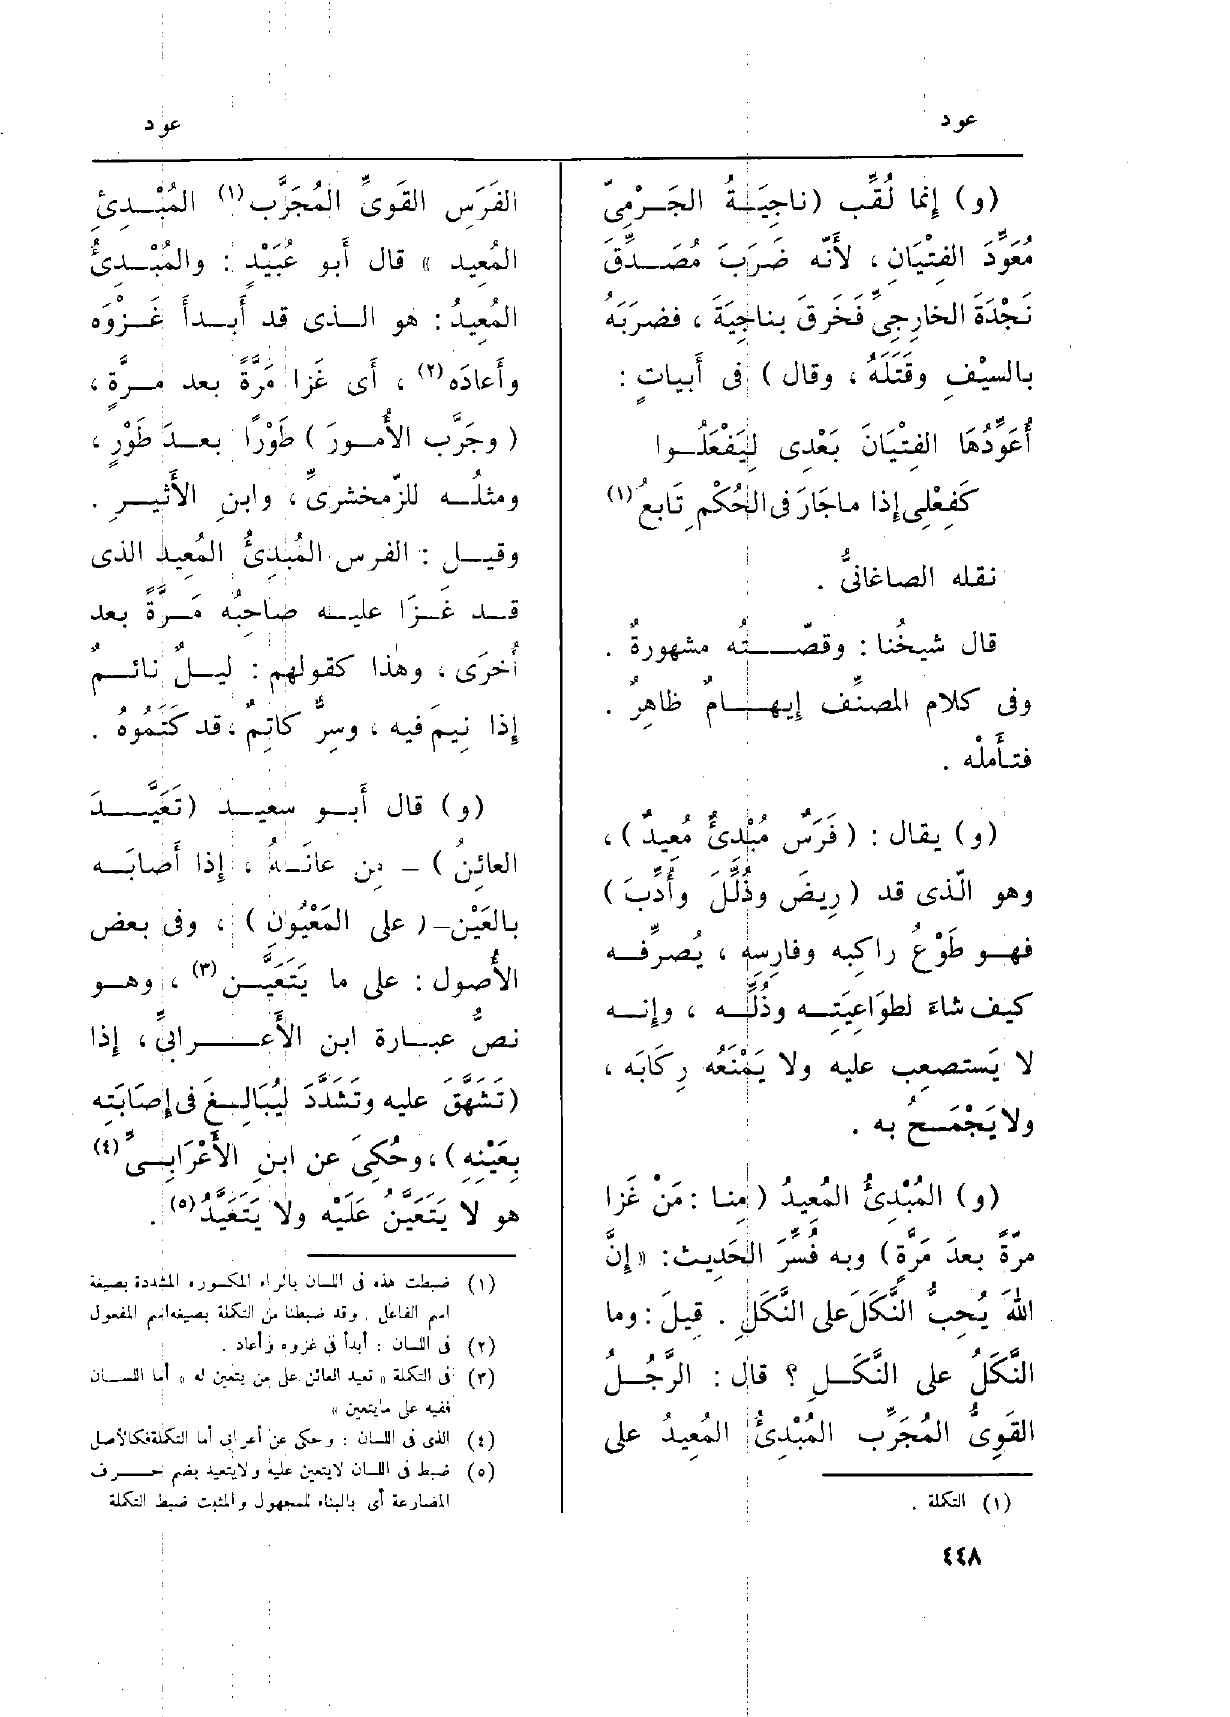 عود
(و) إنما لُقِّب (ناجِيَةُ الجَرْمِىّ
مُعَوِّدَ الفِتْيَانِ، لأَنّه ضَرَبَ مُصَدِّقَ
نَجْدَةَ الخارِجِىِّ فَخَرَقَ بناجِيَةَ ، فضرَبَهُ
بالسيْفِ وقَتَلَهُ ، وقال ) فى أَبياتٍ :
أُعَوِّدُهَا الفِتْيَانَ بَعْدِى لِيَفْعَلُوا
كَفِعْلِى إذا ماجَارَ فى الحُكْمِ تَابِعُ (١)
نقله الصاغانىُّ .
قال شيخُنا : وقصّتُه مشهورةٌ .
وفى كلام المصنِّف إيهامٌ ظاهِرٌ .
فتأَملْه .
(و) يقال : ( فَرَسٌ مُبْدِئٌ مُعِيدٌ ) ،
وهو الّذى قد ( رِيضَ وذُلِّلَ وأُدِّبَ )
فهو طَوْعُ راكبِه وفارِسِه ، يُصرِّفه
كيف شاءَ لطَوَاعِيَتِه وذُلِّه ، وإنه
لا يَستصعِب عليه ولا يَمْنَعُه رِكَابَه ،
ولا يَجْمَحُ به .
(و) المُبْدِئُ المُعِيدُ ( مِنا : مَنْ غَزَا
مرّةً بعدَ مَرَّةٍ ) وبه فُسِّرَ الحَدِيث : « إنَّ
اللهَ يُحِبُّ النَّكَلَ على النَّكَلِ . قيلَ : وما
النَّكَلُ على النَّكَلِ ؟ قال : الرَّجُلُ
القَوِىُّ المُجَرِّب المُبْدِئُ المُعِيدُ على
(١) التكملة .
٤٤٨
عود
الفَرَسِ القَوِىِّ المُجَرَّبِ (١) المُبْدِئِ
المُعِيد » قال أَبو عُبَيْدٍ : والمُبْدِئُ
المُعِيدُ : هو الذى قد أَبدأَ غَزْوَه
وأَعادَه (٢) ، أَى غَزا مَرَّةً بعد مرَّةٍ ،
( وجَرَّب الأُمورَ ) طَوْرًا بعدَ طَوْرٍ ،
ومثلُه للزّمخشرىِّ ، وابنِ الأَثيرِ .
وقيل : الفرس المُبْدِئُ المُعِيد الذى
قد غَزَا عليه صاحِبُه مَرَّةً بعد
أُخرَى ، وهٰذا كقولهم : ليلٌ نائمٌ
إذا نِيمَ فيه ، وسِرٌّ كاتِمٌ ، قد كَتَمُوهُ .
(و) قال أَبو سعيد (تَعَيَّدَ
العائِنُ ) – مِن عانَهُ ، إذا أَصابَه
بالعَيْنِ – ( على المَعْيُونِ ) ، وفى بعض
الأُصول : على ما يَتَعَيَّن (٣) ، وهو
نصُّ عبارة ابن الأَعرابىِّ ، إذا
(تَشَهَّقَ عليه وتَشَدَّدَ لِيُبَالِغَ فى إصَابَتِه
بِعَيْنِهِ ) ، وحُكِىَ عن ابنِ الأَعْرَابىِّ (٤)
هو لا يَتَعَيَّنُ عَلَيْه ولا يَتَعَيَّدُ (٥) .
(١) ضبطت هذه فى اللسان بالراء المكسوره المشددة بصيغة
اسم الفاعل . وقد ضبطنا من التكملة بصيغة اسم المفعول
(٢) فى اللسان : أبدأ فى غزوه وأعاد .
(٣) فى التكملة « تعيد العائن على من يتعين له » أما اللسان
ففيه على ما يتعين »
(٤) الذى فى اللسان : وحكى عن أعرابى أما التكملة فكالأصل
(٥) ضبط فى اللسان لا يتعين عليه ولا يتعيد بضم حرف
المضارعة أى بالبناء للمجهول والمثبت ضبط التكملة